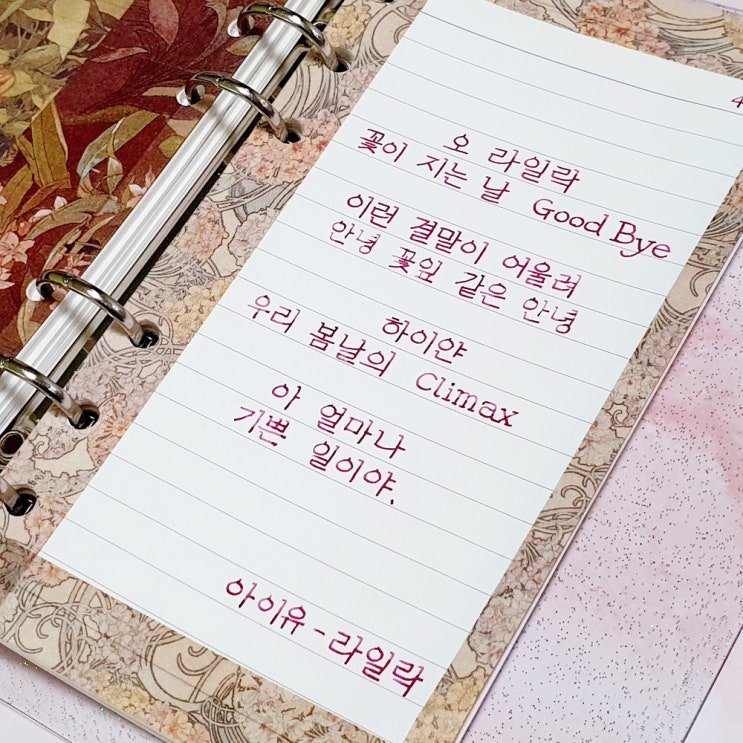 4
오 라일락
꽃이 지는 날 Good Bye
이런 결말이 어울려
안녕 꽃잎 같은 안녕
하이얀
우리 봄날의 Climax
아 얼마나
기쁜 일이야.
아이유 - 라일락